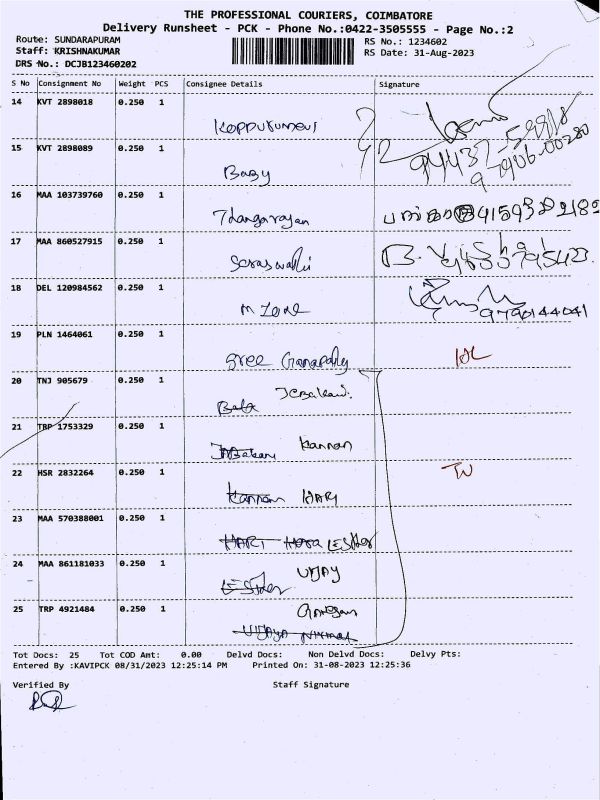 THE PROFESSIONAL COURIERS, COIMBATORE
Delivery Runsheet - PCK - Phone No.:0422-3505555 - Page No.:2
Route: SUNDARAPURAM
RS No.: 1234602
Staff: KRISHNAKUMAR
RS Date: 31-Aug-2023
DRS No.: DCJB123460202
S No Consignment No Weight PCS Consignee Details Signature
14 KVT 2898018 0.250 1
15 KVT 2898089 0.250 1
Baby
16 MAA 103739760 0.250 1
Thangarajan
17 MAA 860527915 0.250 1
18 DEL 120984562 0.250 1
9790144041
19 PLN 1464061 0.250 1
Sree Ganapathy
20 TNJ 905679 0.250 1
21 TRP 1753329 0.250 1
Kannan
22 HSR 2832264 0.250 1
Kannan HARI
23 MAA 570388001 0.250 1
HARI LESTHER
24 MAA 861181033 0.250 1
VIJAY
LESTHER
25 TRP 4921484 0.250 1
Tot Docs: 25 Tot COD Amt: 0.00 Delvd Docs: Non Delvd Docs: Delvy Pts:
Entered By :KAVIPCK 08/31/2023 12:25:14 PM Printed On: 31-08-2023 12:25:36
Verified By Staff Signature